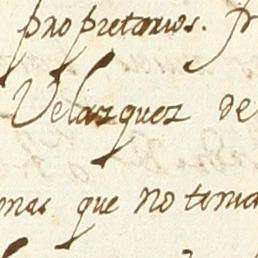 propretarios. fr
Velazquez de
onas que no tenia